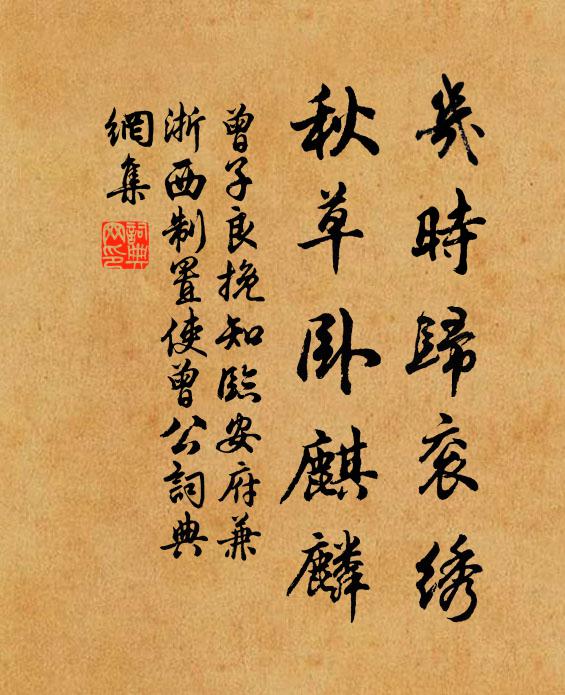 幾時歸衮綉
秋草卧麒麟
曾子良挽知臨安府兼
浙西制置使曾公詞典
網集
詞典網印